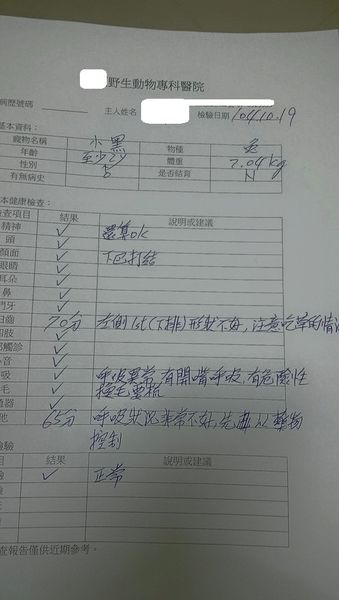 野生動物專科醫院
病歷號碼 主人姓名 檢驗日期 104.10.19
基本資料：
寵物名稱 小黑 物種 兔
年齡 至少2y 體重 2.04kg
性別 ♂ 是否結育 N
有無病史
本健康檢查：
檢查項目 結果 說明或建議
精神 ✓ 還算ok
頭 ✓
顏面 ✓ 下巴打結
眼睛 ✓
耳朵 ✓
鼻 ✓
門牙 ✓
臼齒 70分 左側1st(下排)形狀不好，注意吃草的情況
四肢 ✓
部觸診 ✓
心音 ✓
呼吸 呼吸異常，有開嘴呼吸，有危險性
毛 ✓ 換毛要梳
殖器 ✓
他 65分 呼吸狀況非常不好，先再以藥物
控制
檢驗
目 結果 說明或建議
檢 ✓ 正常
查報告僅供近期參考。